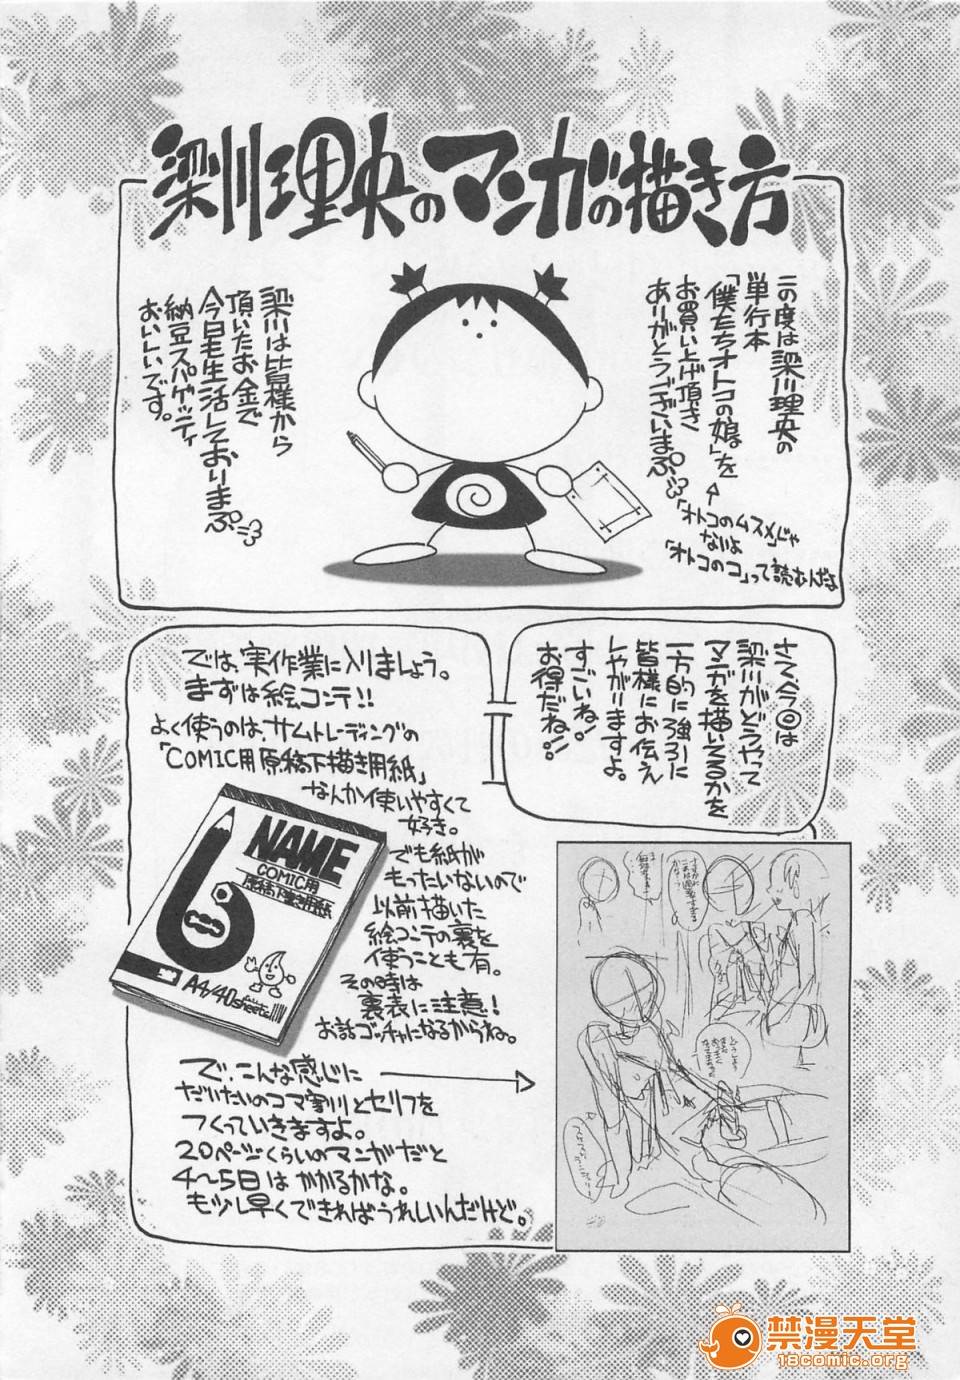 梁川理央のマンガの描き方
この度は梁川理央の
単行本
「僕たちオトコの娘。」を
お買い上げ頂き
ありがとうございまぷ
↑
「オトコのムスメ」じゃ
ないよ
「オトコのコ」って読むんだよ
梁川は皆様から
頂いたお金で
今日も生活しておりまぷ
納豆スパゲッティ
おいしいです。
さて今回は
梁川がどうやって
マンガを描いてるかを
一方的に強引に
皆様にお伝え
しやがりますよ。
すごいね!
お得だね!!
では、実作業に入りましょう。
まずは絵コンテ!!
よく使うのは、サムトレーディングの
「COMIC用原稿下描き用紙」
なんか使いやすくて
好き。
でも紙が
もったいないので
以前描いた
絵コンテの裏を
使うことも有。
その時は
裏表に注意!
お話ゴッチャになるからね。
NAME
COMIC用
原稿下書き用紙
A4/40sheets
で、こんな感じに
だいたいのコマ割りとセリフを
つくっていきますよ。
20ページくらいのマンガだと
4～5日はかかるかな。
もう少し早くできればうれしいんだけど。
禁漫天堂
18comic.org